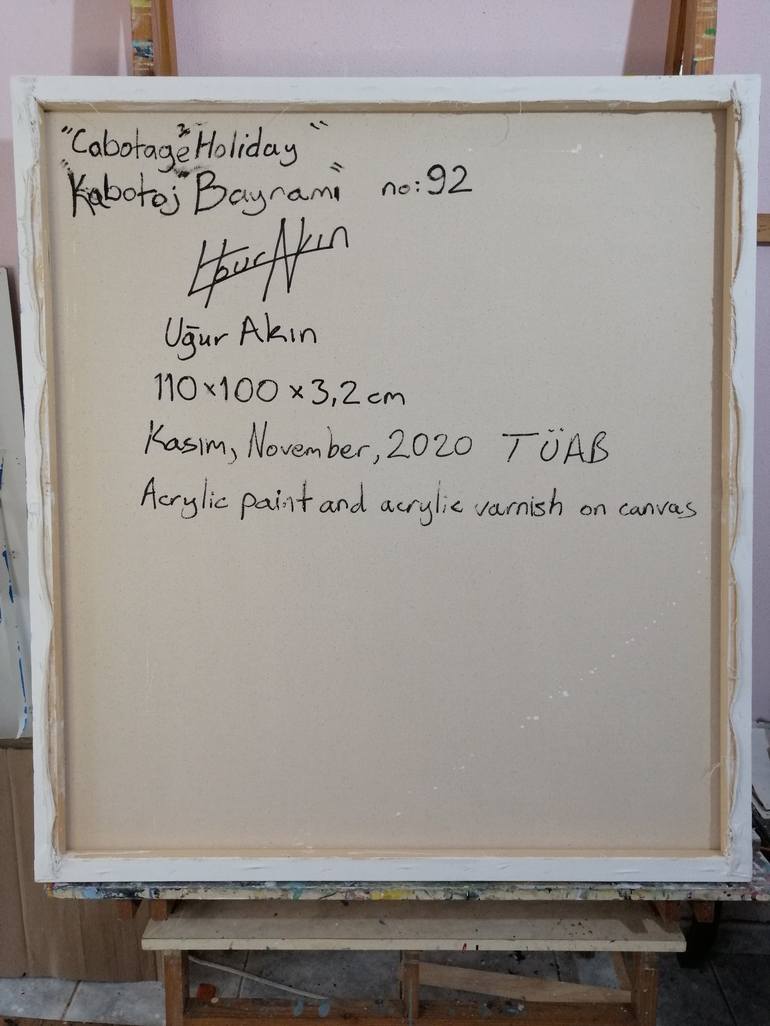 "Cabotage Holiday"
"Kabotaj Bayramı" no:92
Uğur Akın
Uğur Akın
110x100x3,2 cm
Kasım, November, 2020 TÜAB
Acrylic paint and acrylic varnish on canvas